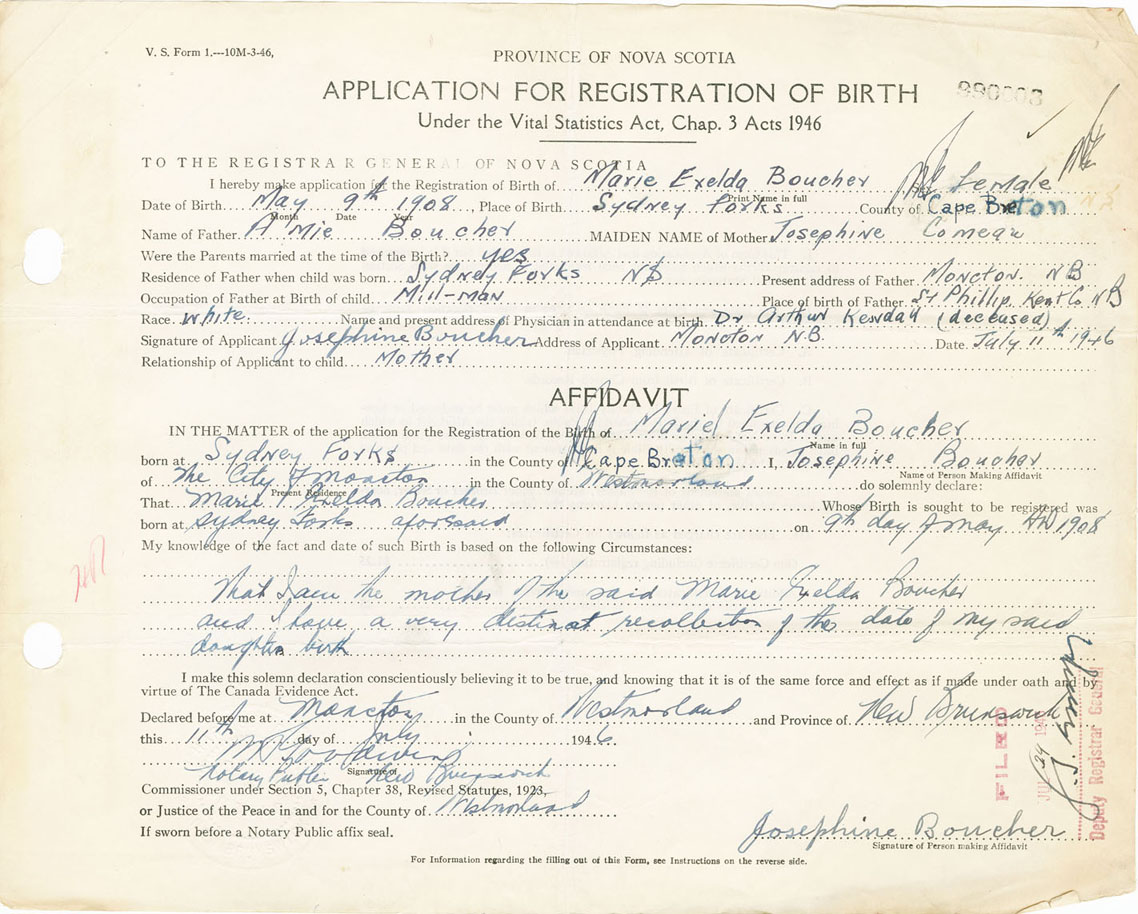 V. S. Form 1.---10M-3-46,
PROVINCE OF NOVA SCOTIA
APPLICATION FOR REGISTRATION OF BIRTH
990003
Under the Vital Statistics Act, Chap. 3 Acts 1946
TO THE REGISTRAR GENERAL OF NOVA SCOTIA
I hereby make application for the Registration of Birth of Marie Exelda Boucher Female
Print Name in full
Date of Birth May 9th 1908, Place of Birth Sydney Forks County of Cape Breton N S
Month Date Year
Name of Father A'Mie Boucher MAIDEN NAME of Mother Josephine Comeau
Were the Parents married at the time of the Birth? yes
Residence of Father when child was born Sydney Forks NS Present address of Father Moncton. NB
Occupation of Father at Birth of child. Mill-man Place of birth of Father St Phillip Kent Co NB
Race white Name and present address of Physician in attendance at birth Dr Arthur Kendall (deceased)
Signature of Applicant Josephine Boucher Address of Applicant Moncton N.B. Date July 11th 1946
Relationship of Applicant to child Mother
AFFIDAVIT
IN THE MATTER of the application for the Registration of the Birth of Mariel Exelda Boucher
Name in full
born at Sydney Forks in the County of Cape Breton I, Josephine Boucher
Name of Person Making Affidavit
of The City of Moncton in the County of Westmorland do solemnly declare:
Present Residence
That Marie Exelda Boucher Whose Birth is sought to be registered was
born at Sydney Forks aforesaid on 9th day of May AD 1908
My knowledge of the fact and date of such Birth is based on the following Circumstances:
That I am the mother of the said Marie Exelda Boucher
and I have a very distinct recollection of the date of my said
daughters birth
I make this solemn declaration conscientiously believing it to be true, and knowing that it is of the same force and effect as if made under oath and by
virtue of The Canada Evidence Act.
Declared before me at Moncton in the County of Westmorland and Province of New Brunswick
this 11th day of July 1946
Notary Public New Brunswick
Signature of
Commissioner under Section 5, Chapter 38, Revised Statutes, 1923,
or Justice of the Peace in and for the County of Westmorland
If sworn before a Notary Public affix seal.
Josephine Boucher
Signature of Person making Affidavit
For Information regarding the filling out of this Form, see Instructions on the reverse side.
FILED
Deputy Registrar General